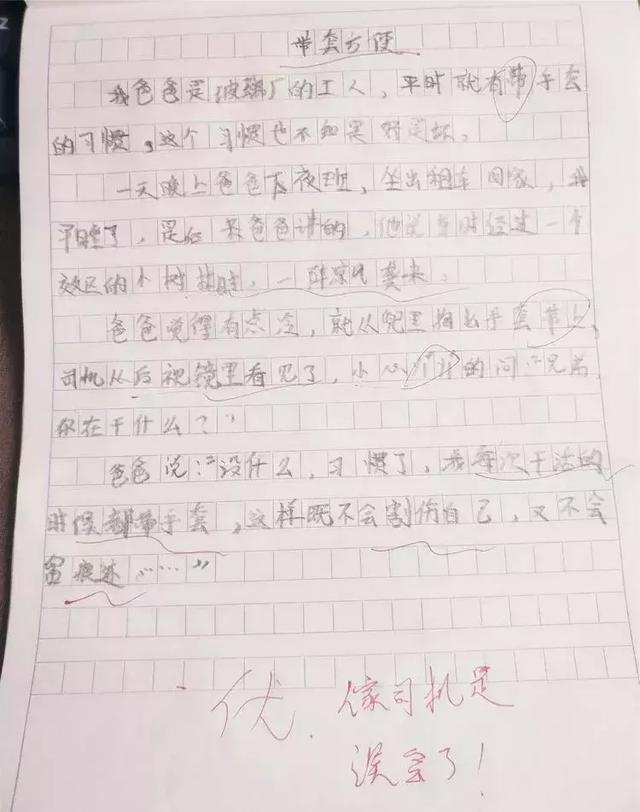 带套方便
我爸爸是玻璃厂的工人，平时就有带手套
的习惯，这个习惯也不知是好是坏。
一天晚上爸爸下夜班，坐出租车回家，我
早睡了，是后来爸爸讲的，他说当时经过一个
效区的小树林时，一阵凉气袭来，
爸爸觉得有点冷，就从兜里掏出手套带上，
司机从后视镜里看见了，小心的问：“兄弟，
你在干什么？”
爸爸说：“没什么，习惯了，我每次干活的
时候都带手套，这样既不会割伤自己，又不会
留痕迹……”
优.
估司机是
误会了！